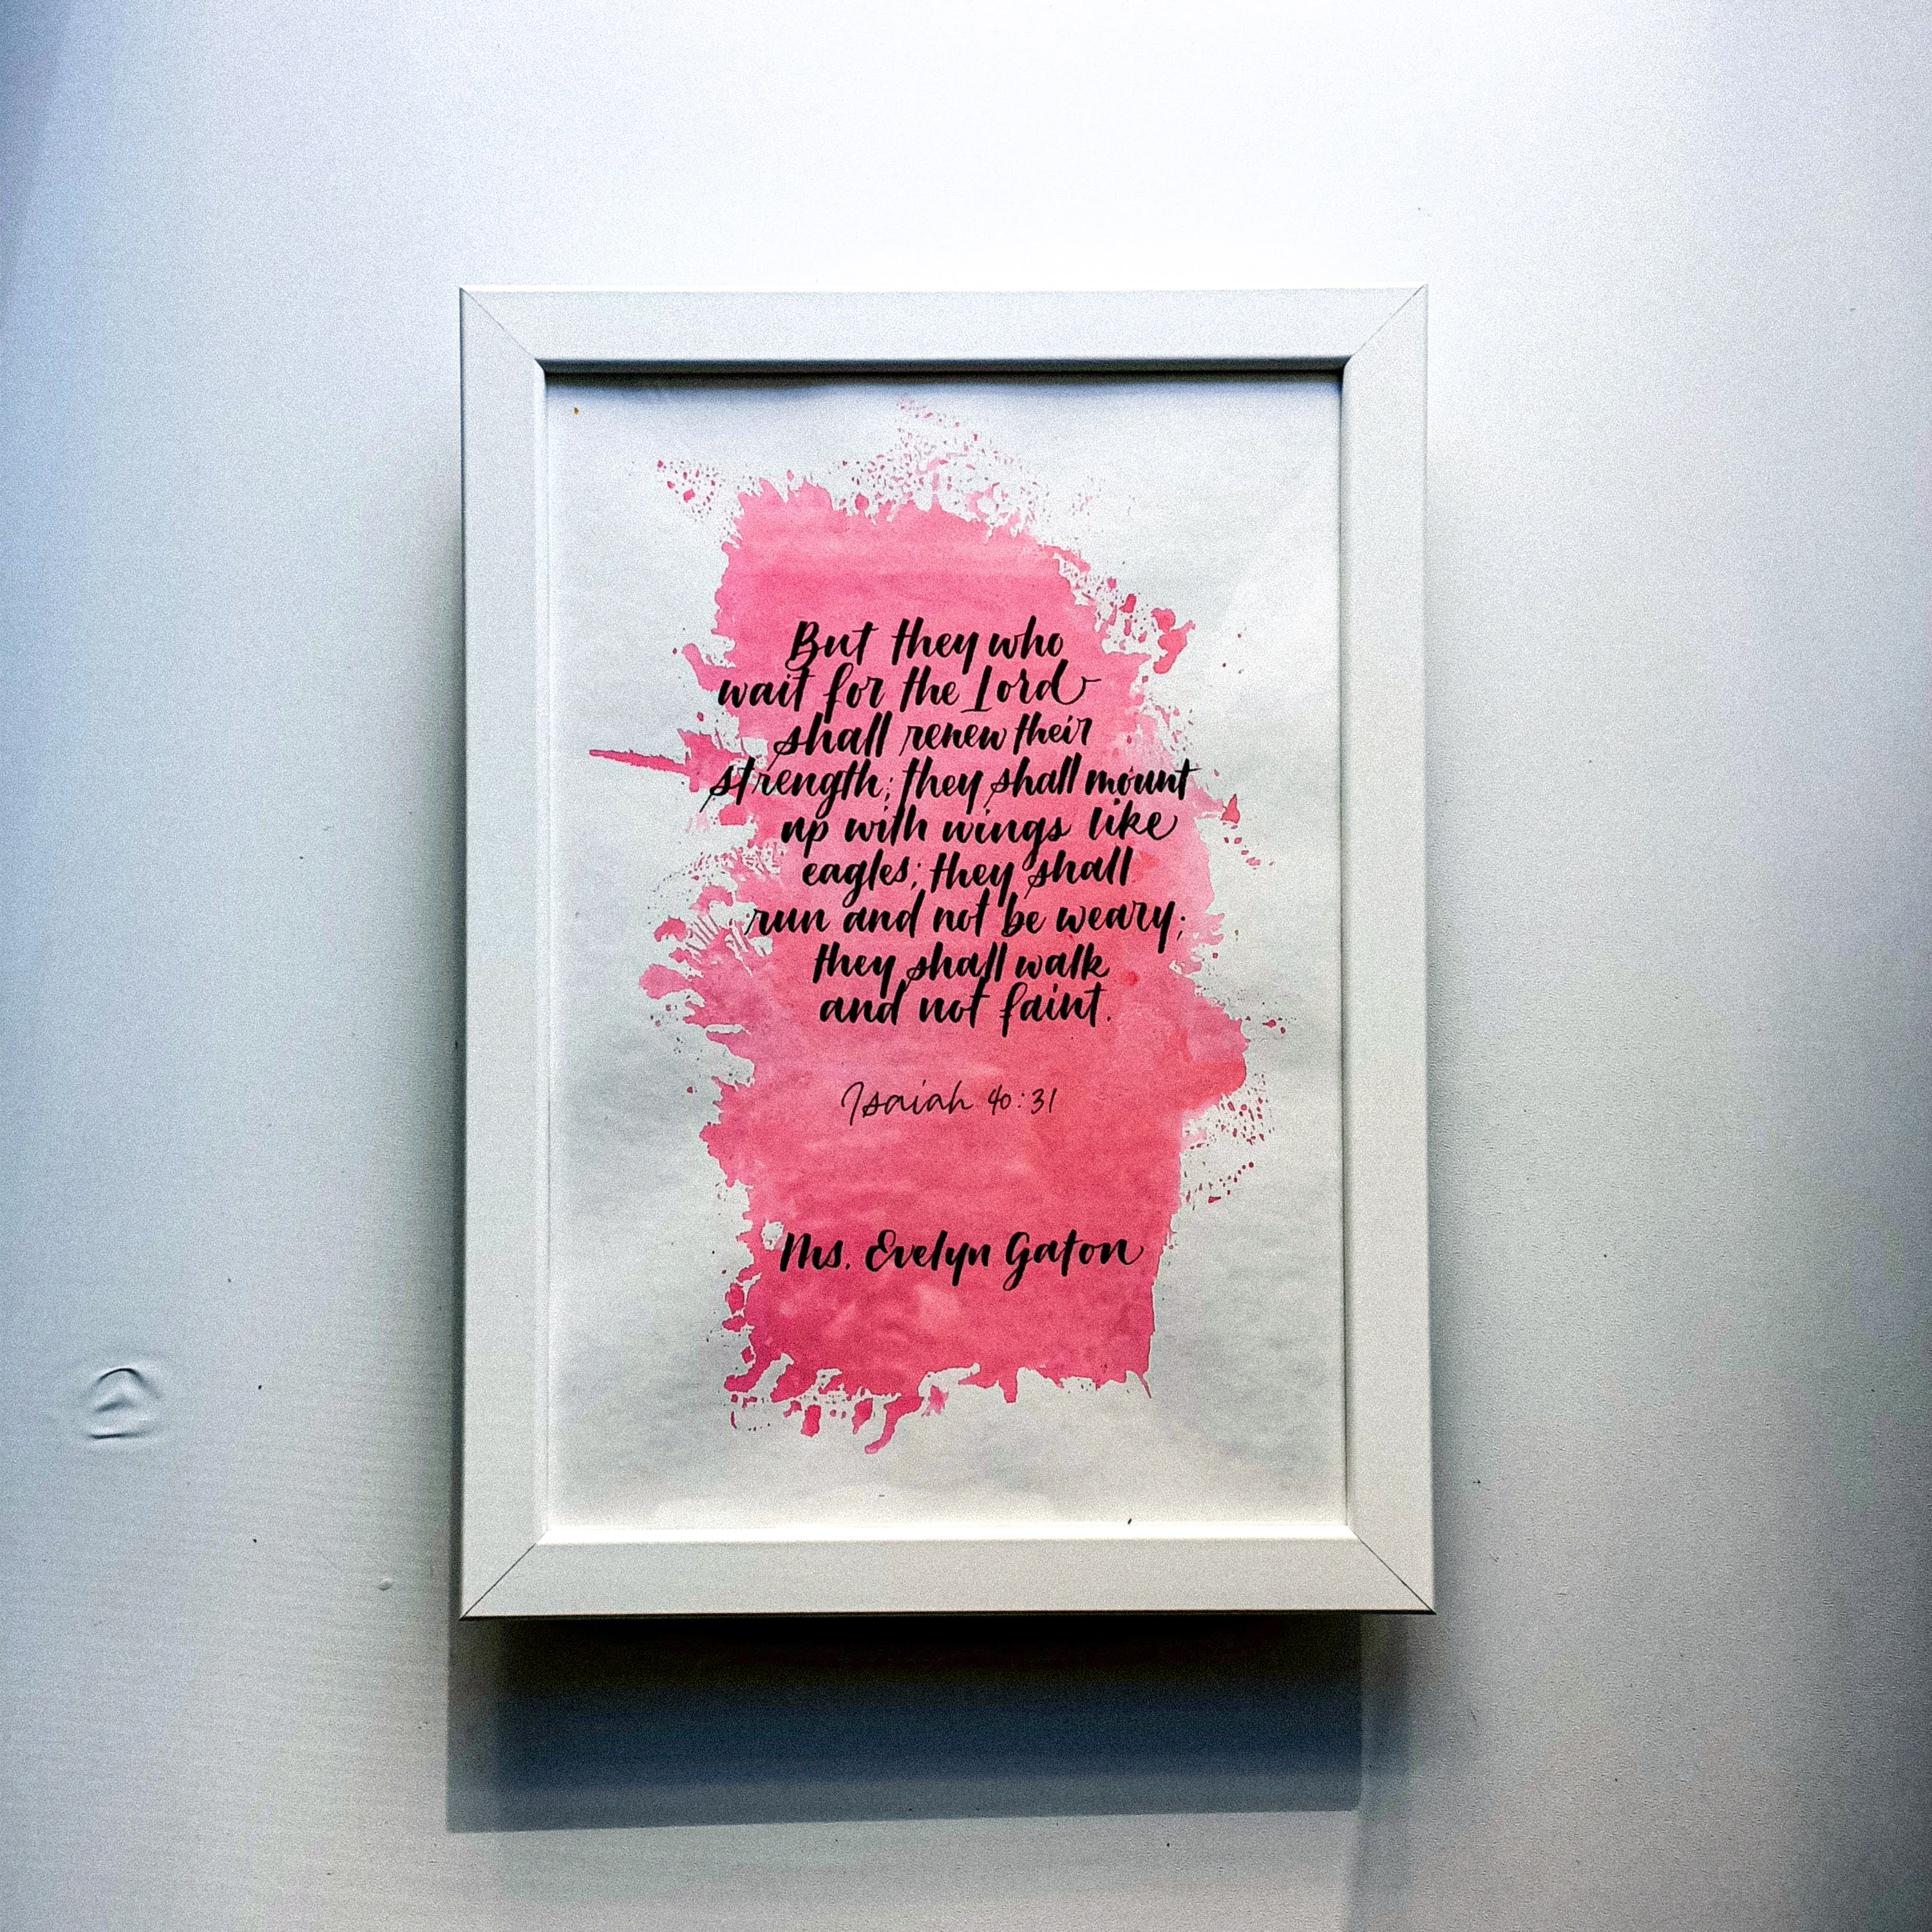 But they who
wait for the Lord
shall renew their
strength; they shall mount
up with wings like
eagles; they shall
run and not be weary;
they shall walk
and not faint.
Isaiah 40:31
Ms. Evelyn Gaton